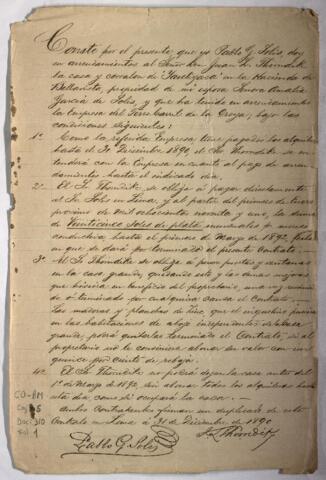 Conste por el presente, que yo Pablo G. Solis, doy
en arrendamiento al Señor Don Juan L. Thorndike
la casa y corralon de
en la Hacienda de
propiedad de mi esposa Señora Amalia
Garcia de Solis, y que ha tenido en arrendamiento
la Empresa del Ferro Carril de la Oroya; bajo las
condiciones siguientes:
1ª Como la referida Empresa tiene pagados los alquileres
hasta el 31 Diciembre 1890, el Sr. Thorndike se en-
tenderá con la Empresa en cuanto al pago de arren-
damientos hasta el indicado dia.
2ª El Sr. Thorndike se obliga á pagar directamente
al Sr. Solis en Lima, y al partir del primero de Enero
proximo de mil ochocientos noventa y uno, la suma
de Veinticinco Soles de plata mensuales por meses
hasta el primero de Marzo de 1892, fecha
en que se dará por terminado el presente Contrato.
3ª El Sr. Thorndike se obliga á poner puertas y ventanas
en la casa grande, quedando estas y las demas mejoras
que hiciera en beneficio del propietario, una vez rescindi-
do ó terminado por cualquiera causa el Contrato.
Las maderas y planchas de zinc, que el inquilino pusiera
en las habitaciones de abajo independientes de la casa
grande, podrá quitarlas terminado el Contrato, si al
propietario no le conviniera abonar su valor con un
quince por ciento de rebaja.
4ª El Sr. Thorndike no podrá dejar la casa antes del
1º de Marzo de 1892, sin abonar todos los alquileres hasta
esta dia, como si ocupará la casa.
Ambos Contratantes firman un duplicado de este
Contrato en Lima á 31 de Diciembre de 1890
Pablo G. Solis
J. L. Thorndike
CO-AM
Caj 5
Doc 310
Fol 1